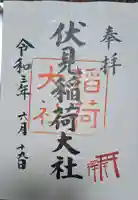 奉拝
伏見稲荷大社
稲荷
大社
令和三年六月十九日